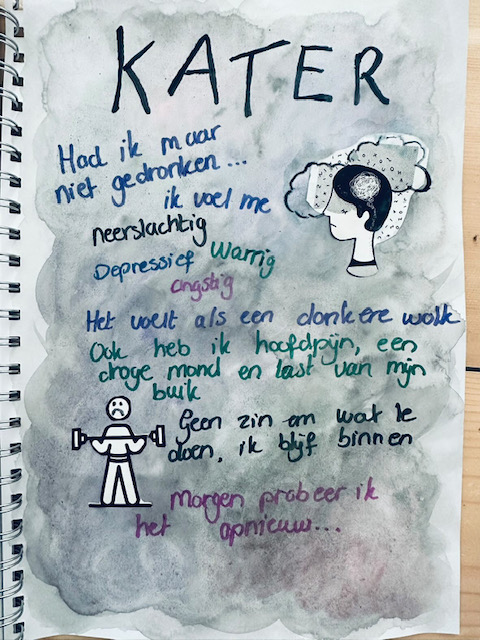 KATER
Had ik maar
niet gedronken...
ik voel me
neerslachtig
Depressief Warrig
angstig
Het voelt als een donkere wolk
Ook heb ik hoofdpijn, een
droge mond en last van mijn
buik
Geen zin om wat te
doen, ik blijf binnen
Morgen probeer ik
het opnieuw...